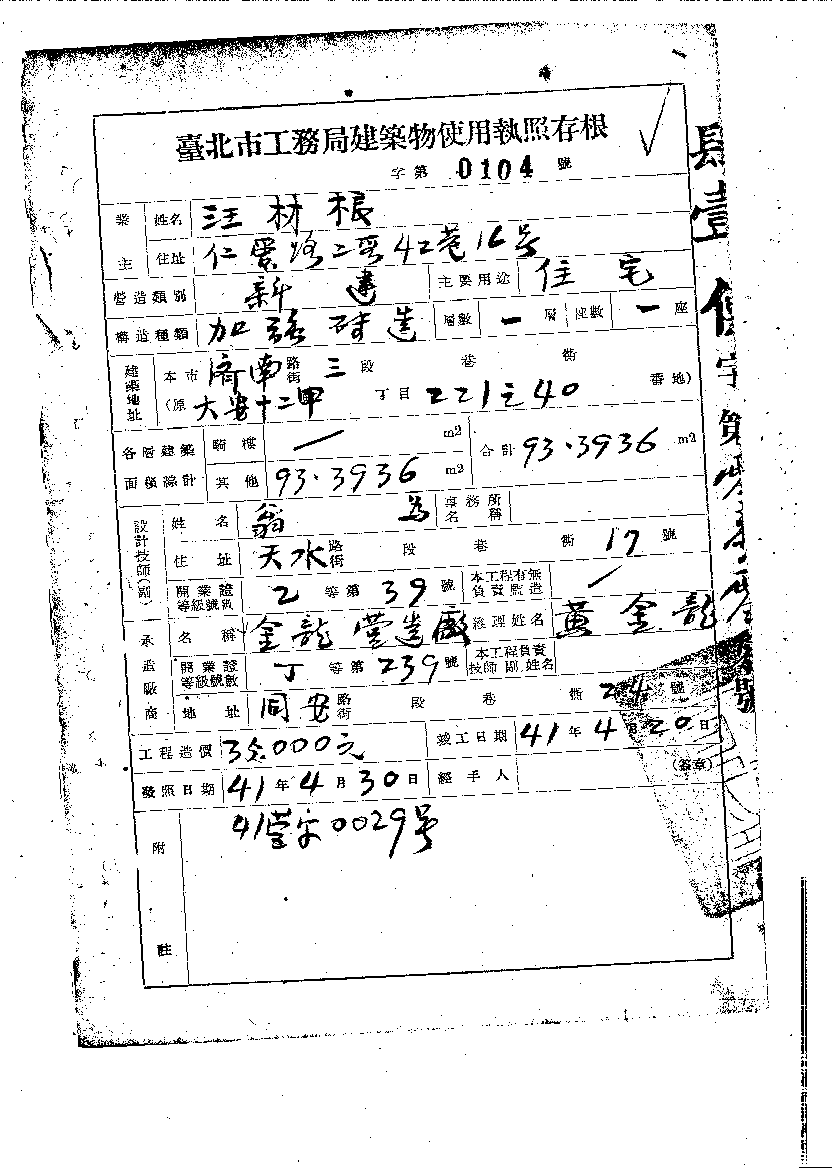 臺北市工務局建築物使用執照存根
字第 0104 號
業主 姓名 汪材根
住址 仁愛路二段42巷16号
營造類別 新建 主要用途 住宅
構造種類 加強磚造 層數 一 層 座數 一 座
建築地址 本市 济南 路街 三 段 巷 衖
(原 大安十二甲 丁目 221之40 番地)
各層建築面積綜計 騎樓 / m2 合計 93.3936 m2
其他 93.3936 m2
設計技師(副) 姓名 翁 為 事務所名稱
住址 天水 路街 段 巷 衖 17 號
開業證等級號數 乙 等第 39 號 本工程有無負責監造 /
承造廠商 名稱 金龍營造廠 經理姓名 黃金龍
開業證等級號數 丁 等第 239 號 本工程負責技師 副 姓名
地址 同安 路街 段 巷 衖 24 號
工程造價 35.000元 竣工日期 41年4月20日
發照日期 41年4月30日 經手人 (簽章)
附註 41營字0029号
肆壹使字第
號